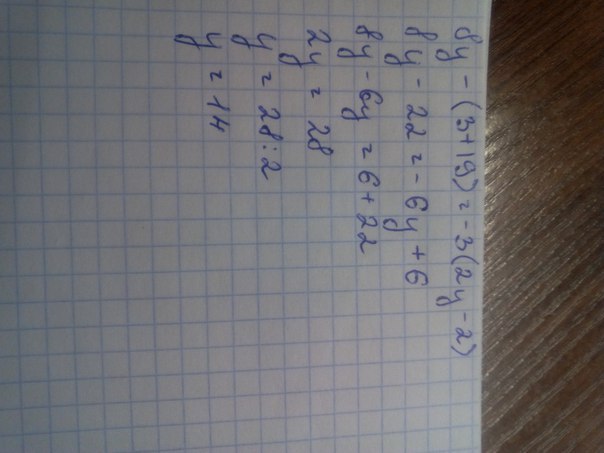 8y - (3+19) = -3(2y-2)
8y - 22 = -6y + 6
8y - 6y = 6 + 22
2y = 28
y = 28:2
y = 14